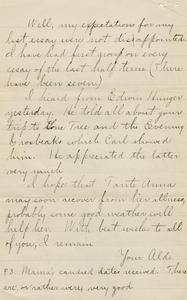 Well, my expectations for my
last essay were not disappointed
I have had first group on every
essay of the last half term (There
have been seven)
I heard from Edwin Hunger
yesterday. He told all about your
trip to Lone Tree and the Evening
Grosbeaks which Carl showed
him. He appreciated the latter
very much
I hope that Tante Anna
may soon recover from her illness,
probably some good weather will
help her. With best wishes to all
of you, I remain
Your Aldo
P.S. Mama's candied dates received. These
are, or rather were, very good